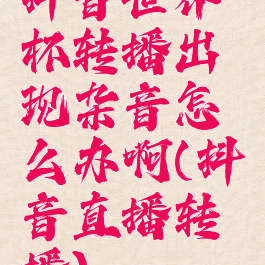 抖音世界
杯转播出
现杂音怎
么办啊(抖
音直播转
播)